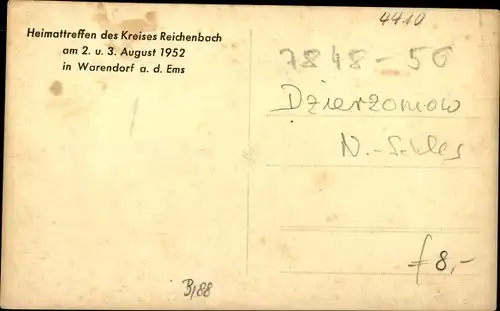 Heimattreffen des Kreises Reichenbach
am 2. u. 3. August 1952
in Warendorf a. d. Ems
4410
7848-50
Dzierzoniow
N.-Schles
f 8,-
B/88